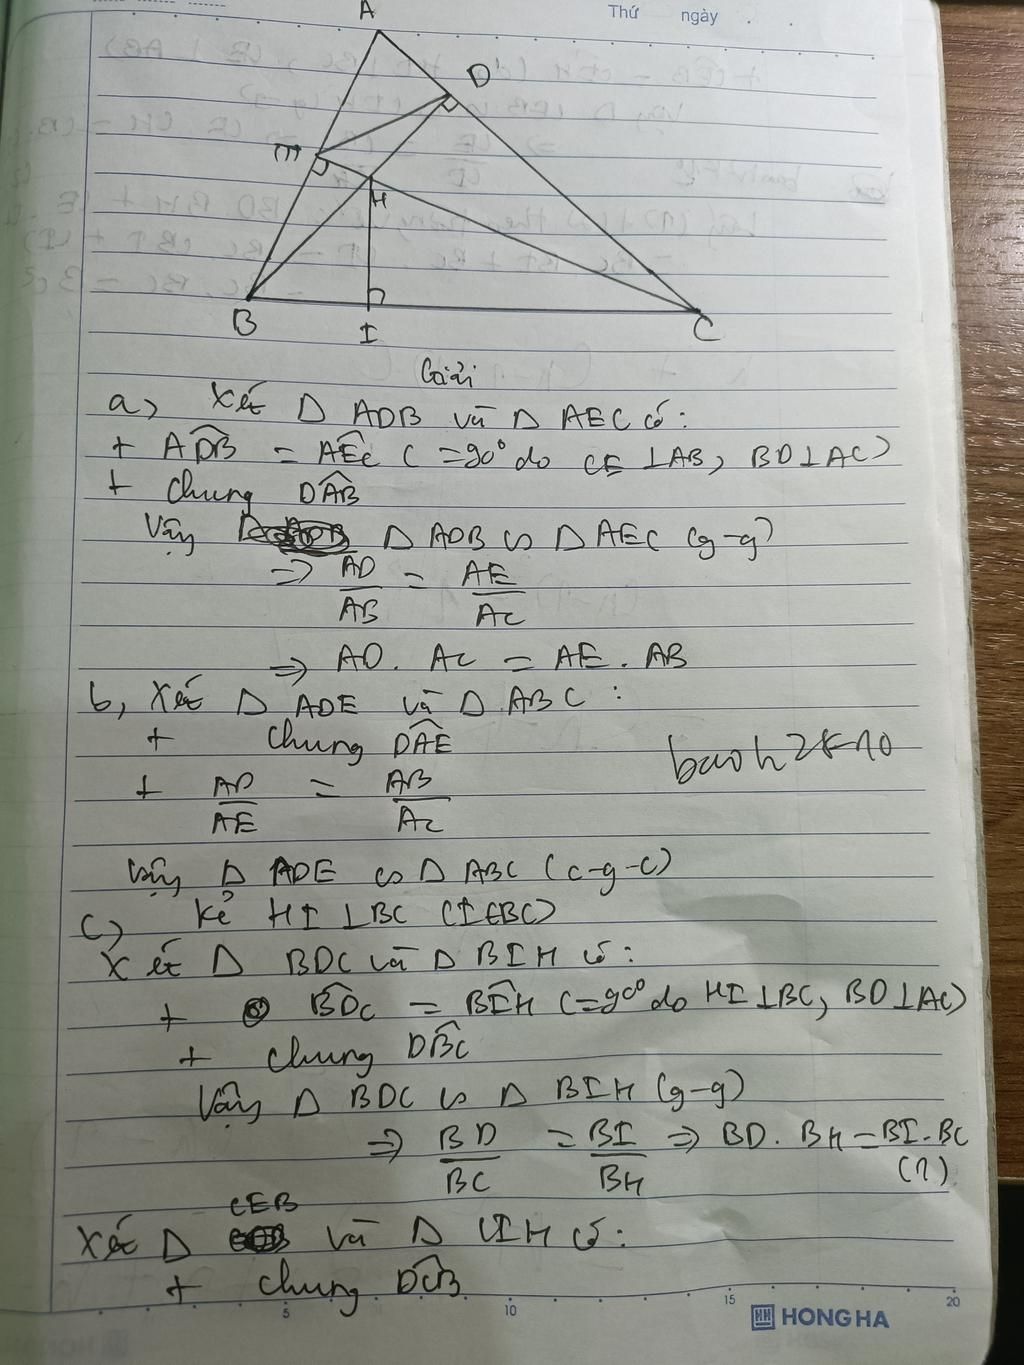 Thứ ngày . .
A
D
E
H
B
I
C
Giải
a) Xét Δ ADB và Δ AEC có:
+ ADB̂ = AÊC (=90° do CE ⊥AB, BD⊥AC)
+ chung DÂB
Vậy Δ ADB ∽ Δ AEC (g-g)
=> AD/AB = AE/AC
=> AD. AC = AE. AB
b, Xét Δ ADE và Δ ABC :
+ chung DÂE
baoh2k10
+ AD/AE = AB/AC
Vậy Δ ADE ∽ Δ ABC (c-g-c)
c) Kẻ HI ⊥BC (I∈BC)
Xét Δ BDC và Δ BIH có:
+ BD̂C = BÎH (=90° do HI⊥BC, BD⊥AC)
+ chung DB̂C
Vậy Δ BDC ∽ Δ BIH (g-g)
=> BD/BC = BI/BH => BD. BH = BI. BC
(1)
CEB
Xét Δ và Δ CIH có:
+ chung DĈB
5 10 15 20
HH HONG HA